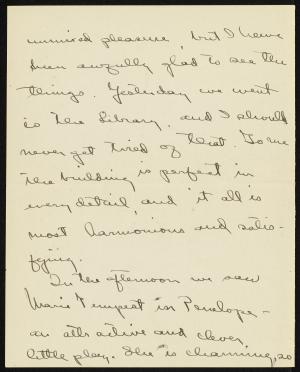 unmixed pleasure, but I have
been awfully glad to see the
things. Yesterday we went
to the Library, and I should
never get tired of that. To me
the building is perfect in
every detail, and it all is
most harmonious and satis-
fying.
In the afternoon we saw
Marie Tempest in Penelope -
an attractive and clever
little play. She is charming, so